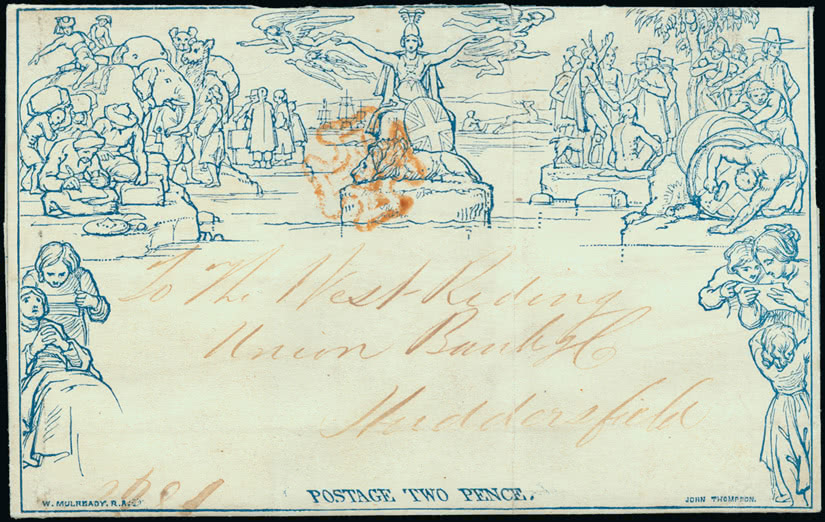 To The West Riding
Union Bankg C
Huddersfield
W. MULREADY, R.A.
POSTAGE TWO PENCE.
JOHN THOMPSON.